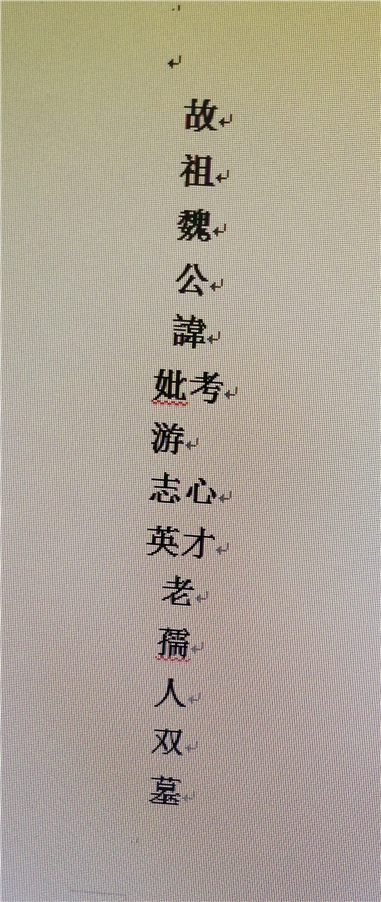 故
祖
魏
公
諱
妣考
游
志心
英才
老
孺
人
双
墓